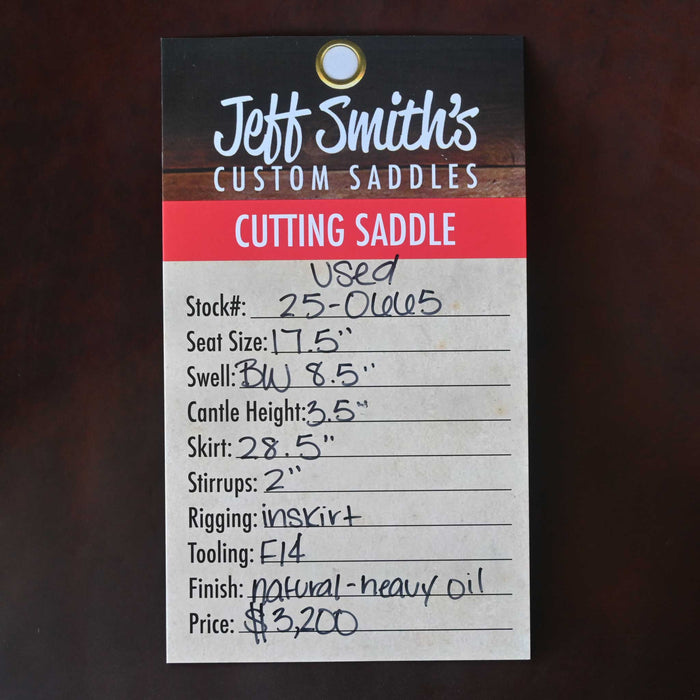 Jeff Smith's
CUSTOM SADDLES
CUTTING SADDLE
used
Stock#: 25-0665
Seat Size: 17.5"
Swell: BW 8.5"
Cantle Height: 3.5"
Skirt: 28.5"
Stirrups: 2"
Rigging: inskirt
Tooling: F14
Finish: natural-heavy oil
Price: $3,200